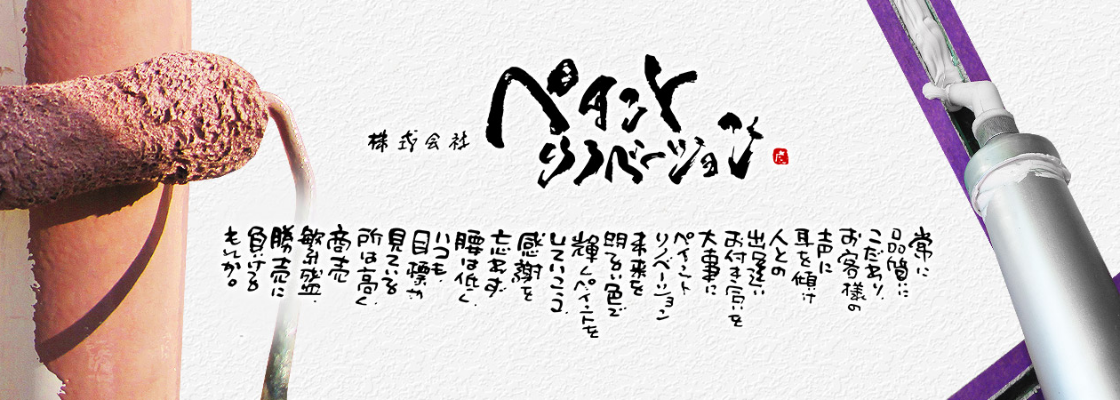 株式会社
ペイント
リノベーション
常に
品質に
こだわり
お客様の
声に
耳を傾け
人との
出逢い
お付き合いを
大事に
ペイント
リノベーション
未来を
明るい色で
輝くペイントを
していこう
感謝を
忘れず
腰は低く
いつも
目標や
見ている
所は高く
商売
繁盛
勝売に
負けるも
もんか。